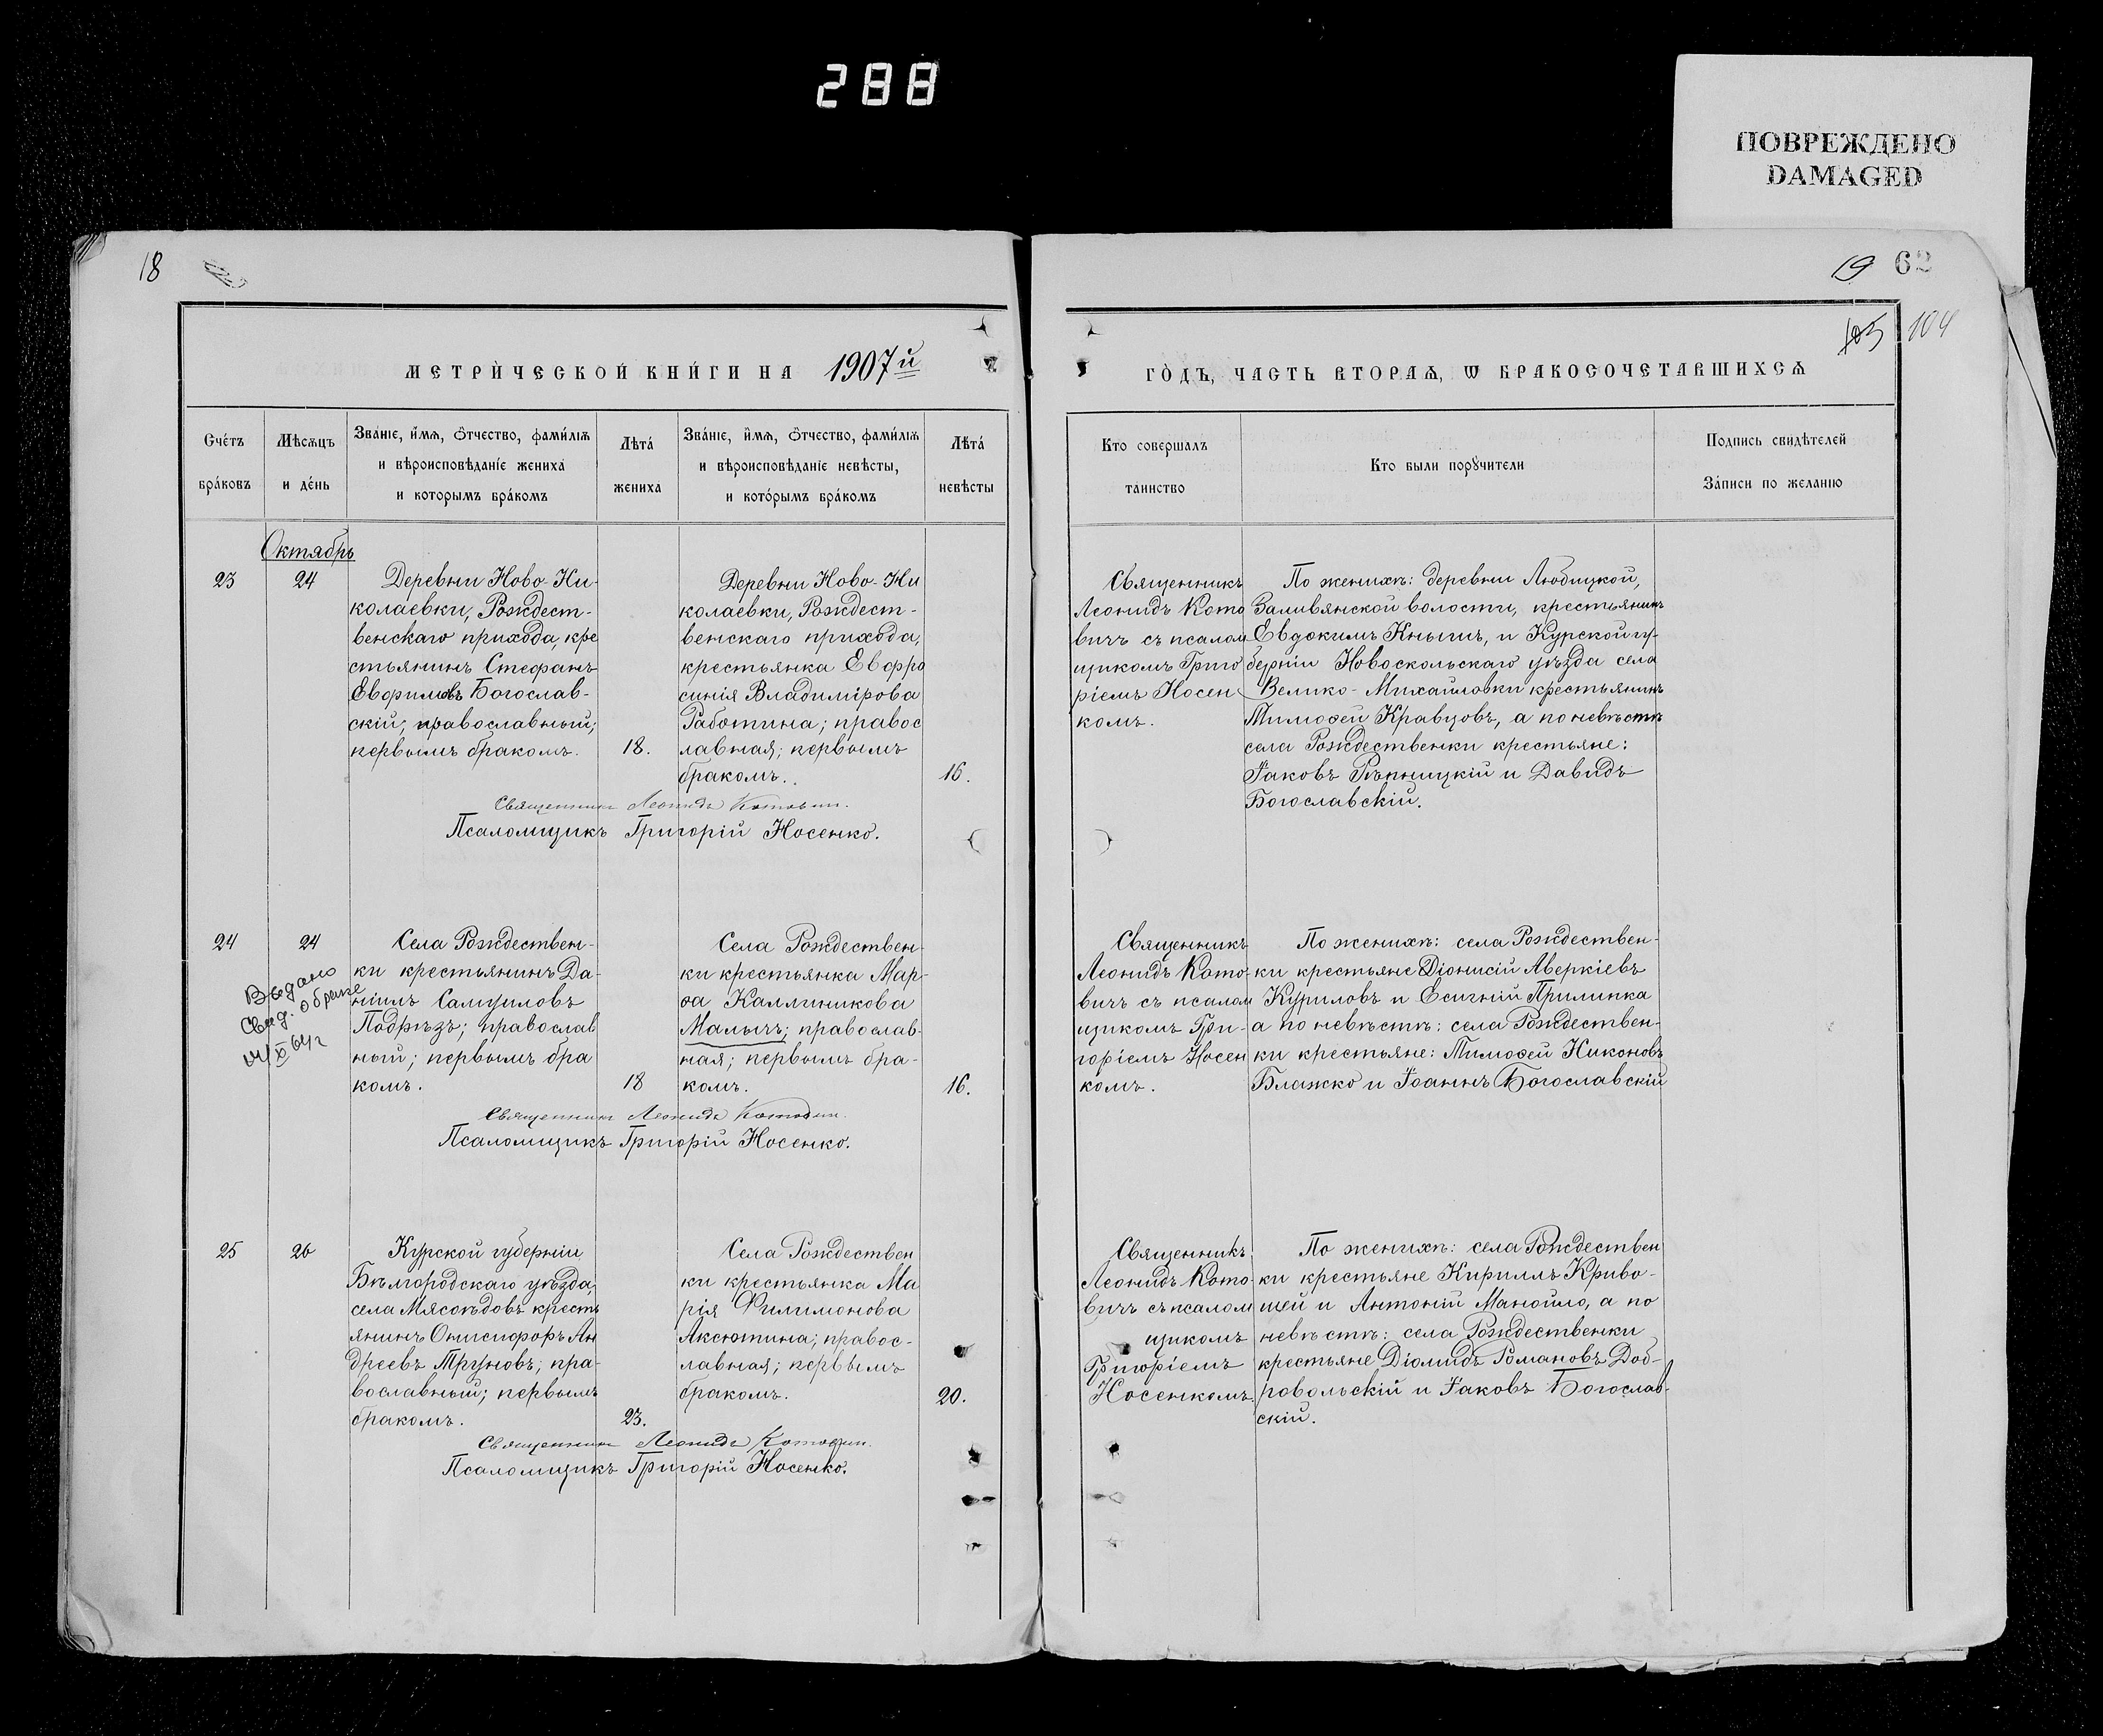 288
ПОВРЕЖДЕНО
DAMAGED
18
19 62
105 104
МЕТРИ́ЧЕСКОЙ КНИ́ГИ НА 1907й
ГО́ДЪ, ЧАСТЬ ВТОРАѦ, Ѡ БРАКОСОЧЕТАВШИХСѦ
Сче́тъ
бра́ковъ
Мѣсѧцъ
и де́нь
Зва́нїе, и҆́мѧ, ѻ҆́тчество, фами́лїѧ
и вѣроисповѣданїе жениха̀
и которымъ бра́комъ
Лѣта́
жениха
Зва́нїе, и҆́мѧ, ѻ҆́тчество, фами́лїѧ
и вѣроисповѣданїе невѣсты,
и кото́рымъ бра́комъ
Лѣта́
невѣсты
Кто совершалъ
таинство
Кто были порꙋчители
Подпись свидѣтелей
За́писи по желанію
Октябрь
23
24
Деревни Ново-Ни-
колаевки, Рождест-
венскаго прихода, кре
стьянинъ Стефанъ
Евфимовъ Богослав-
скій; православный;
первымъ бракомъ.
18.
Деревни Ново-Ни
колаевки, Рождест-
венскаго прихода,
крестьянка Евфро
синія Владимірова
Работина; правос
лавная; первымъ
бракомъ.
16.
Священникъ
Леонидъ Кото
вичъ съ псалом
щикомъ Григо
ріемъ Носен
комъ.
По женихѣ: деревни Любицкой,
Заливянской волости, крестьянинъ
Евдокимъ Кнышъ, и Курской гу-
берніи Новоскольскаго уѣзда села
Велико-Михайловки крестьянинъ
Тимоѳей Кравцовъ, а по невѣстѣ
села Рождественки крестьяне:
Іаковъ Рѣпницкій и Давидъ
Богославскій.
Священникъ Леонидъ Котович.
Псаломщикъ Григорій Носенко.
24
24
Выдано
Свид. о браке
14/X 64 г
Села Рождествен-
ки крестьянинъ Да-
ніилъ Самуиловъ
Подрѣзъ; православ
ный; первымъ бра
комъ.
18
Села Рождествен-
ки крестьянка Мар-
ѳа Каллиникова
Малычъ; православ-
ная; первымъ бра-
комъ.
16.
Священникъ
Леонидъ Кото-
вичъ съ псалом
щикомъ Гри-
горіемъ Носен
комъ.
По женихѣ: села Рождествен-
ки крестьяне Діонисій Аверкіевъ
Куриловъ и Есигній Прилипка
а по невѣстѣ: села Рождествен-
ки крестьяне: Тимоѳей Никоновъ
Блажко и Іоаннъ Богославскій
Священникъ Леонидъ Котович.
Псаломщикъ Григорій Носенко.
25
26
Курской губерніи
Бѣлгородскаго уѣзда,
села Мясоѣдовъ кресть
янинъ Онисифоръ Ан
дреевъ Труновъ; пра-
вославный; первымъ
бракомъ.
23.
Села Рождествен
ки крестьянка Ма
рія Филимонова
Аксютина; правос-
лавная; первымъ
бракомъ.
20.
Священникъ
Леонидъ Кото-
вичъ съ псалом
щикомъ
Григоріемъ
Носенкомъ
По женихѣ: села Рождествен
ки крестьяне Кириллъ Криво-
шей и Антоній Манойло, а по
невѣстѣ: села Рождественки
крестьяне Діомидъ Романовъ Доб-
ровольскій и Іаковъ Богослав-
скій.
Священникъ Леонидъ Котович.
Псаломщикъ Григорій Носенко.